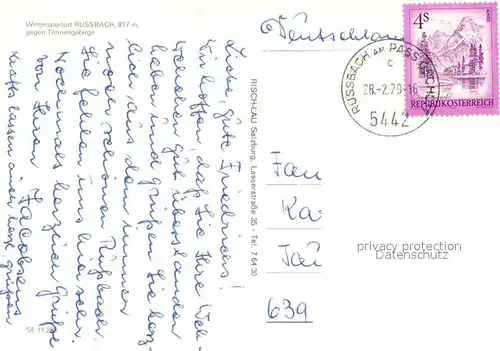 Wintersportort RUSSBACH, 817 m,
gegen Tennengebirge
Liebe, gute Friedrices!
Wir hoffen, daß Sie Ihre
gut überstanden
haben und grüßen Sie herz-
lich aus dem immer
noch schönen Rußbach.
Sie fehlen uns hier sehr.
Nochmals herzliche Grüße
von Ihren Jacobsens
lassen auch herzl. grüßen
SE 11.281
RISCHLAU Salzburg, Lasserstraße 35 - Tel. 7 64 30
Deutschland
RUSSBACH AM PASS GSCHÜTT
c
28.-2.79-16
5442
4S
REPUBLIK ÖSTERREICH
Fam
Ka
639
privacy protection
Datenschutz